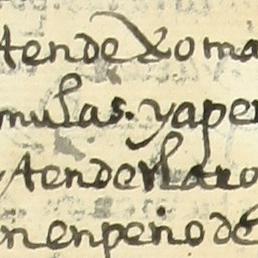 tende Xoma
mulas. yaper
tender laro
nenpeño de